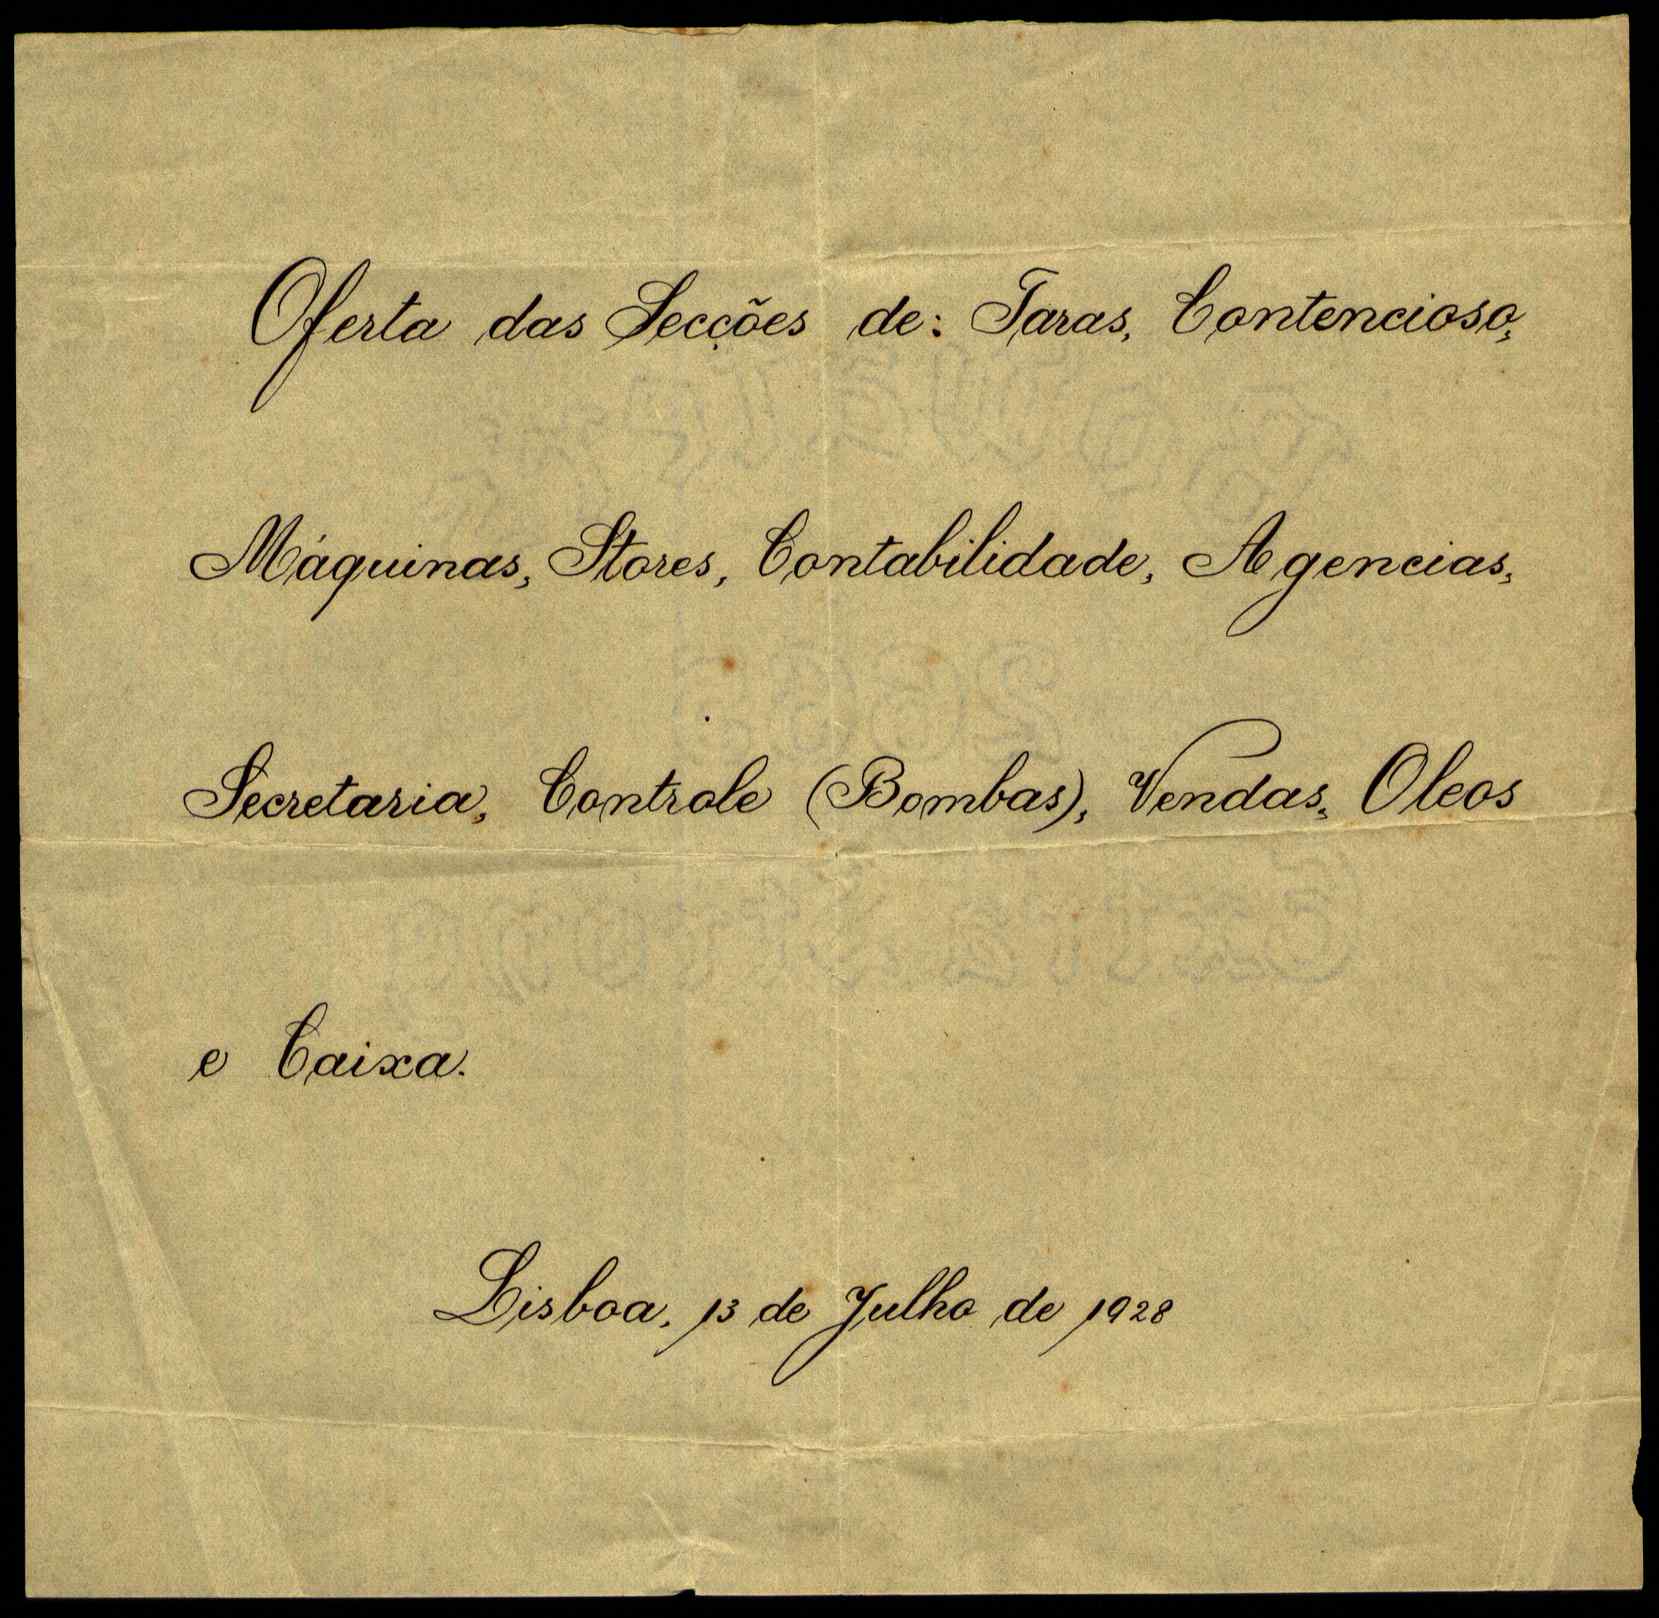 Oferta das Secções de: Taras, Contencioso,
Máquinas, Stores, Contabilidade, Agencias,
Secretaria, Controle (Bombas), Vendas, Oleos
e Caixa.
Lisboa, 13 de Julho de 1928